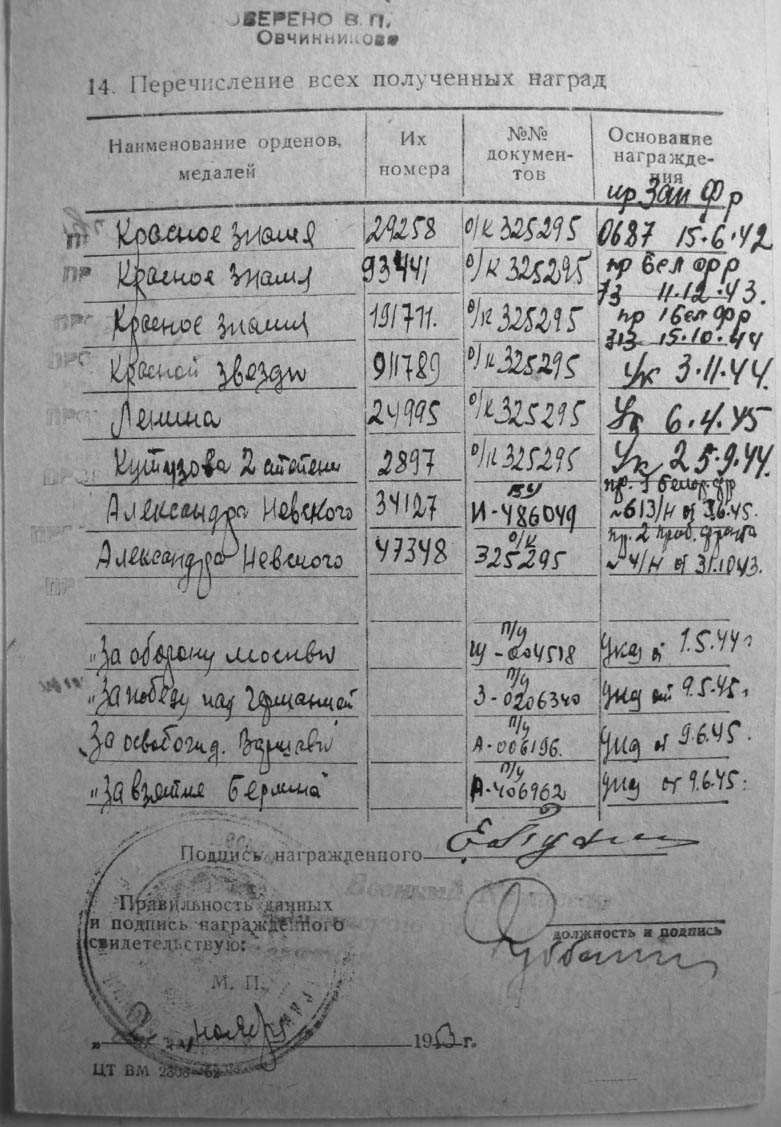 ВЕРЕНО В. П.
Овчинников
14. Перечисление всех полученных наград
Наименование орденов, медалей
Их номера
№№ документов
Основание награждения
пр Зап Фр
Красное знамя 29258 о/к 325295 0687 15.6.42
Красное знамя 93441 о/к 325295 пр Бел фр
73 11.12.43.
Красное знамя 191711. о/к 325295 пр 1 Бел Фр
313 15.10.44
Красной звезды 911789 о/к 325295 Ук 3.11.44.
Ленина 24995 о/к 325295 Ук 6.4.45
Кутузова 2 степени 2897 о/к 325295 Ук 25.9.44.
Александра Невского 34127 И-486049 пр. 1 Белор. фр
№613/н от 3.6.45.
Александра Невского 47348 о/к 325295 пр. 2 Приб. фронта
№4/н от 31.10.43.
"За оборону Москвы п/у Щ-004518 указ от 1.5.44г
"За победу над Германией п/у З-0206340 указ от 9.5.45г
"За освобожд. Варшавы п/у А-006196. указ от 9.6.45.
"За взятие Берлина" п/у А-406962 указ от 9.6.45.
Подпись награжденного
Правильность данных
и подпись награжденного
свидетельствую:
должность и подпись
М. П.
" 2 " ноября 1963 г.
ЦТ ВМ 2308-62